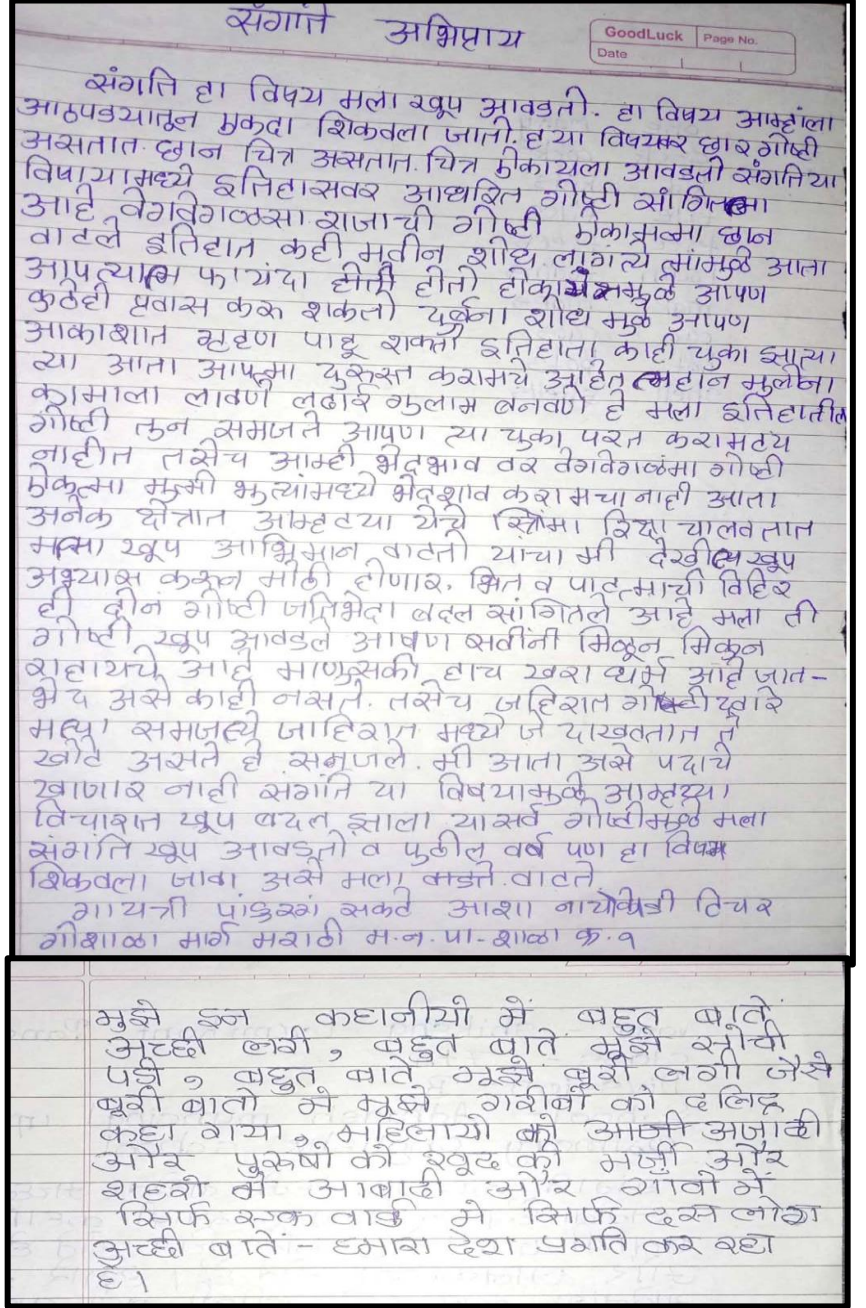 संगति अभिप्राय
GoodLuck Page No.
Date
संगति हा विषय मला खूप आवडतो. हा विषय आम्हांला
आठपडयातून एकदा शिकवला जातो. ह्या विषयावर छार गोष्टी
असतात. छान चित्र असतात. चित्र ऐकायला आवडतो संगतिया
विषायामध्ये इतिहासवर आधारित गोष्टी सांगितल्या
आहे वेगवेगळ्सा राजाची गोष्टी ऐकाल्मा छान
वाटले इतिहात कही मतीन शोध लागत्ये त्यांमुळे आता
आपत्याल फायंदा होती होतो होकायंत्रामुळे आपण
कुठेही प्रवास करु शकतो दुर्बना शोध मुळे आपण
आकाशात ग्रहण पाहू शकतो इतिहाता काही चुका झात्या
त्या आता आपल्मा दुरुस्त करामचे आहेत लहान मुलांना
कामाला लावणे लढार गुलाम बनवणे हे मला इतिहातील
गोष्टी तुन समजते आपण त्या चुका परत करामटय
नाहीत तसेच आम्ही भेदभाव वर वेगवेगळमा गोष्टी
ऐकल्मा मुमी भुत्यांमध्ये भेदभाव करामचा नाही आता
अनेक क्षेत्रात आम्हटया येथे स्त्रिमा रिक्षा चालवतात
मला खूप अभिमान वाटतो याचा मी देखील खूप
अभ्यास करून मोठी होणार. भित व पाटल्माची विहिर
ही दोन गोष्टी जतिभेदा बदल सांगितले आहे मला ती
गोष्टी खूप आवडले आपण सर्वांनी मिळून मिळून
राहायचे आहे माणुसकी हाच खरा धर्म आहे जात-
भेद असे काही नसते. तसेच जहिरात गोष्टी द्वारे
मला समजल्ये जाहिरात मध्ये जे दाखवतात ते
खोटे असते हे समजले. मी आता असे पदार्थ
खाणार नाही संगति या विषयामुळे आम्हच्या
विचारात खूप बदल झाला या सर्व गोष्टीमुळे मला
संगति खूप आवडतो व पुढील वर्ष पण हा विषम
शिकवला जावा असे मला वाटते
गायत्री पांडुरंग सकटे आशा टिचर
गोशाळा मार्ग मराठी म.न.पा-शाळा क्र. १
मुझे इन कहानीयो में बहुत बाते
अच्छी लगी, बहुत बाते मुझे सोची
पडी, बहुत बाते मुझे बूरी लगी जैसे
बूरी बातो मे मुझे गरीबो को दलिद्र
कहा गया, महिलायो को आजी अजादी
और पुरुषो को खूद की मर्जी और
शहरो मे आबादी और गाँवो में
सिर्फ एक वार्ड मे सिर्फ दस लोग
अच्छी बाते:- हमारा देश प्रगति कर रहा
है।